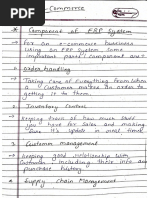 Commerce
* Component of ERP System
→ For an e-commerce business
using an ERP system some
important parts / component are:-
1. Order handling
→ Taking care of everything from when
a customer makes the order to
getting it to them.
2. Inventory Control
→ Keeping track of how much stuff
you have for sales and making
sure it's update in real time
3. Customer management
→ Keeping good relationship with
customers including their info and
purchase history
4. Supply Chain Management